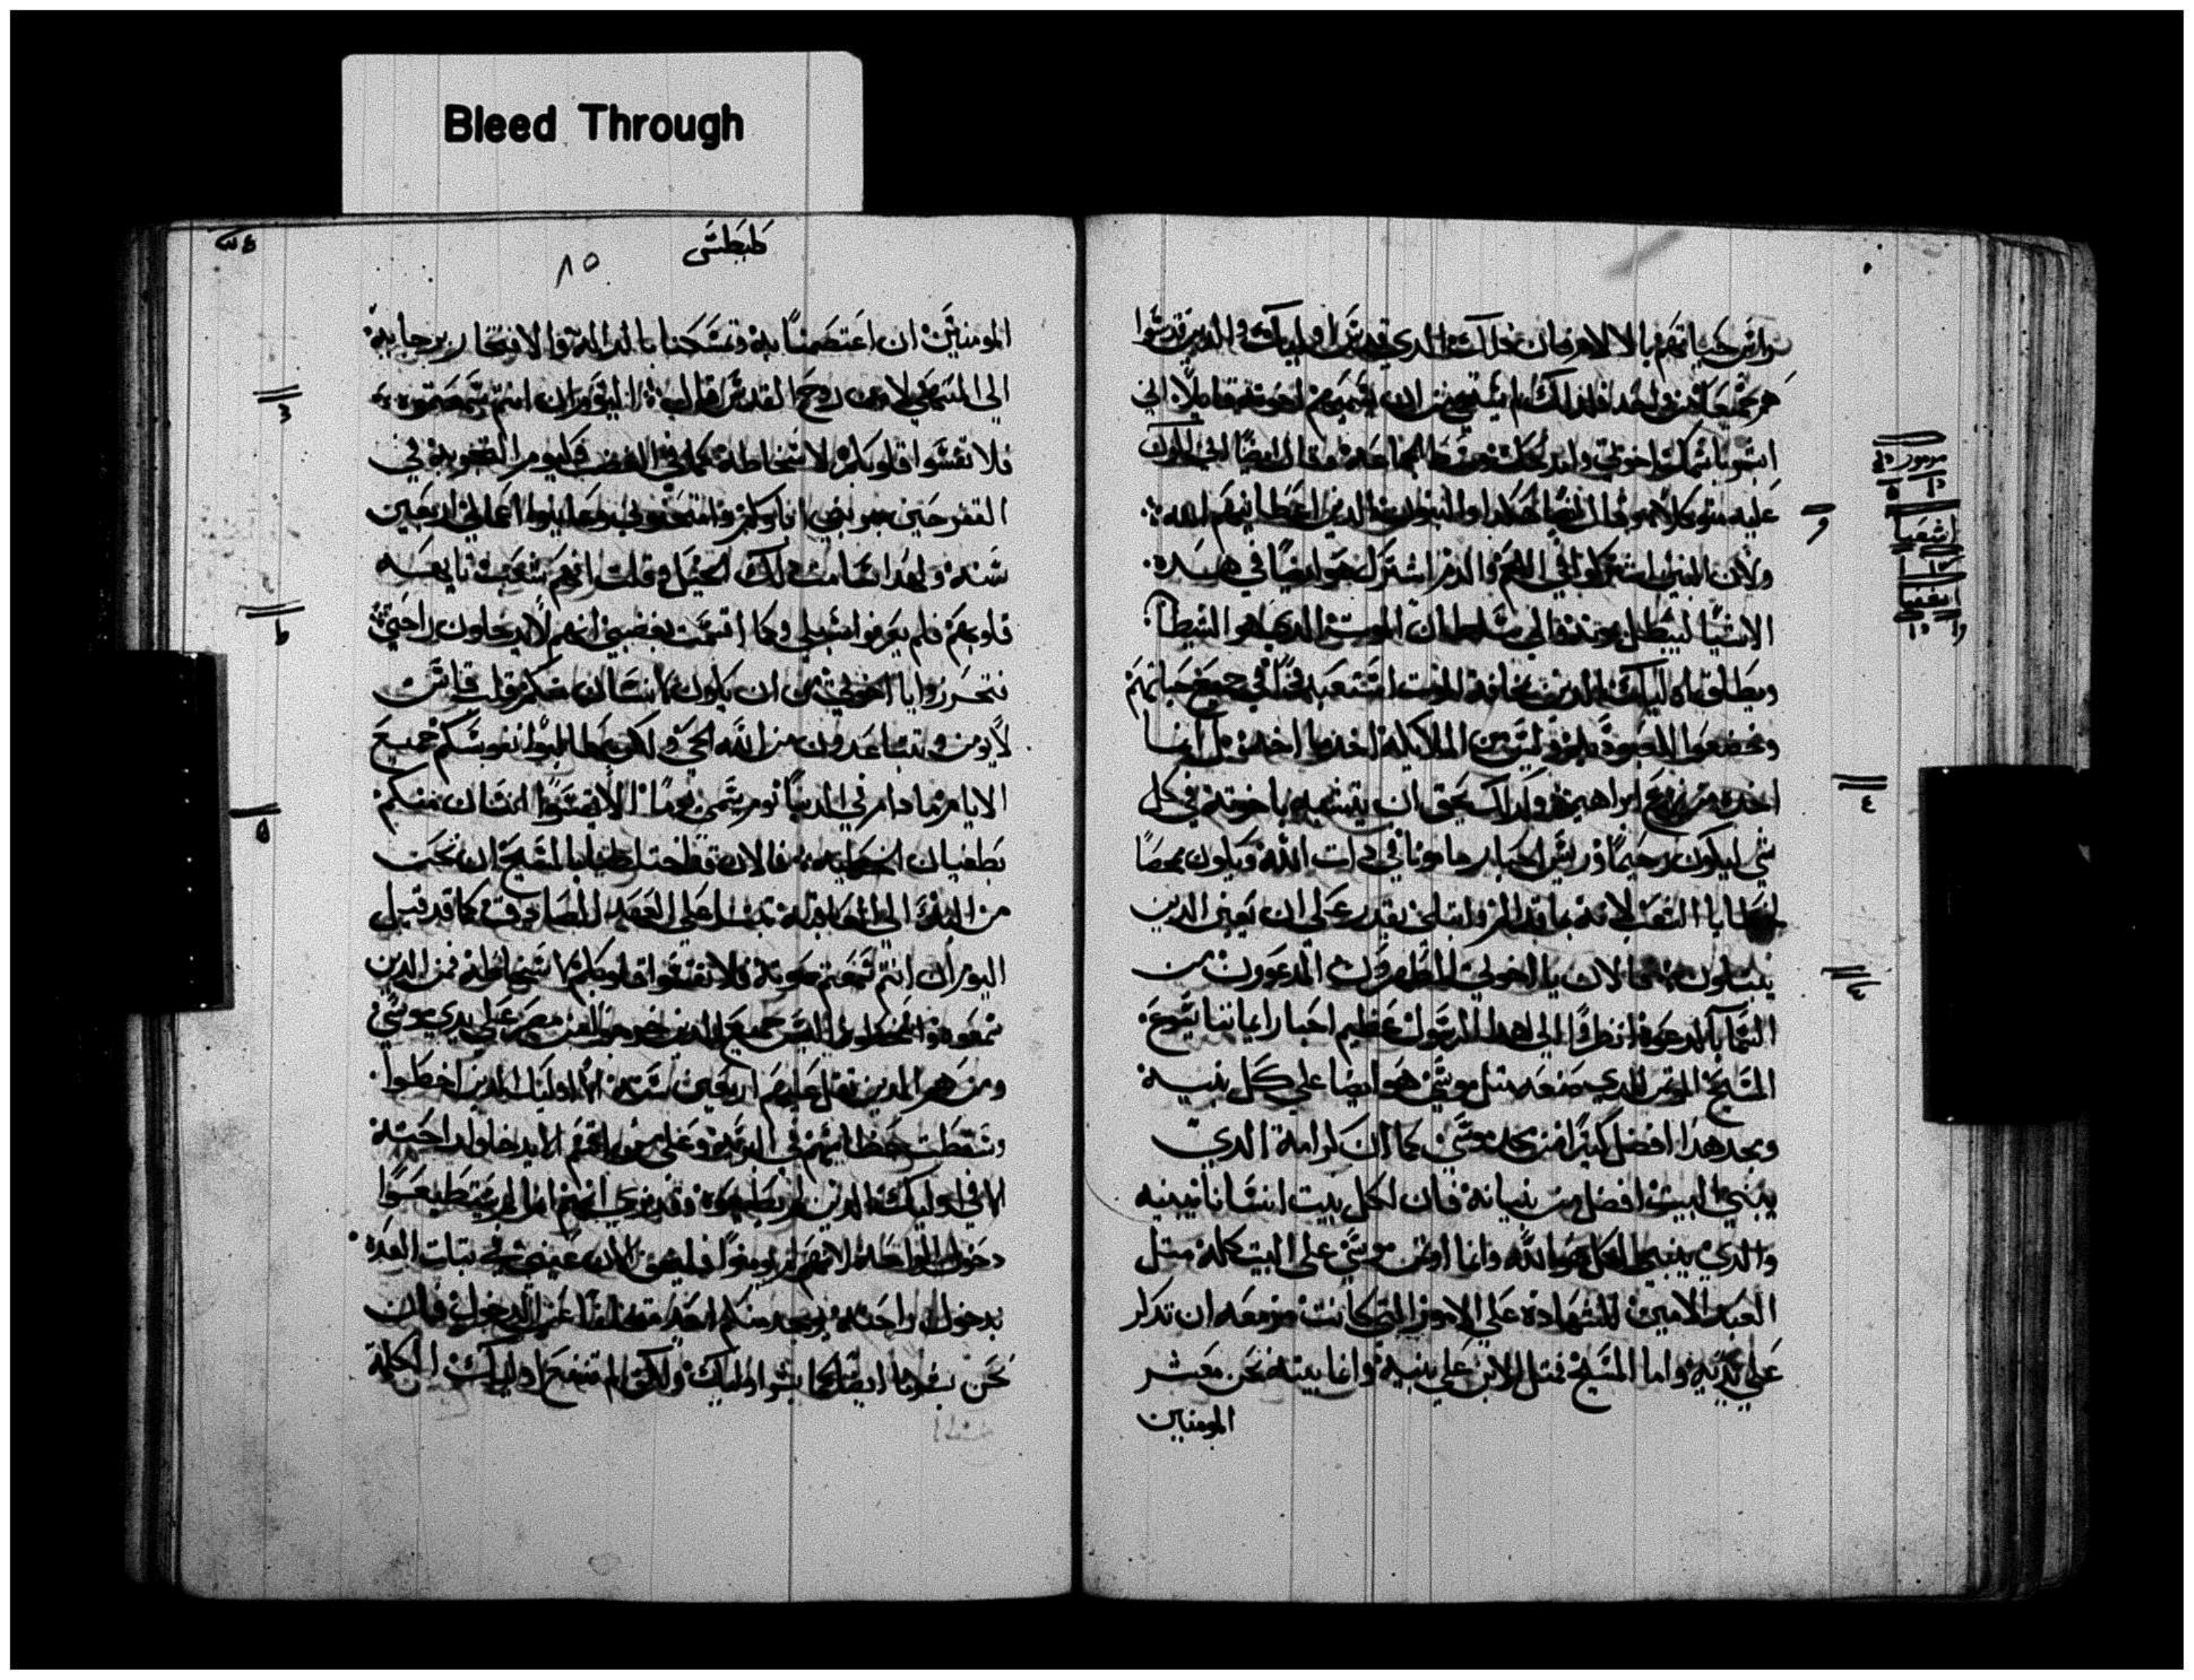 Bleed Through
حياتهم بالالام فان ذلك الدي قدس اوليك والدين قدسوا
هم جميعا من واحد فلذلك لم يستحي من ان يسميهم اخوته قايلا اني
ابشر باسمك اخوتي وامدحك وسط الجماعة وقال ايضا اني اكون
عليه متوكلا وقال ايضا هاندا والبنون الدين اعطانيهم الله
ولان البنين اشتركوا في اللحم والدم اشترك هو ايضا في هده
الاشيا ليبطل بموته والي سلطان الموت الدي هو الشيطان
ويطلق اوليك الدين مخافة الموت استعبدوا في جميع حياتهم
وخضعوا للعبودية وليس من الملايكة اخد ما اخد بل انما
اخد من زرع ابراهيم ولداك يحق ان يتشبه باخوته في كل
شي ليكون رحيما وريس احبار مامونا في دات الله ويكون ممحصا
لخطايا الشعب لانه بما قد الم وابتلي يقدر علي ان يعين الدين
يبتلون فمن الان يا اخوتي المطهرون المدعوون من
السما بالدعوة انظروا الي هدا الرسول عظيم احبار ايماننا يسوع
المسيح الموتمن للدي صنعه مثل موسي هو ايضا علي كل بنيه
ومجد هدا افضل كثيرا من مجد موسي كما ان كرامة الدي
يبني البيت افضل من بنيانه فان لكل بيت انسانا يبنيه
والدي يبني الكل هو الله وانما اوتمن موسي علي البيت كله متل
العبد الامين للشهادة علي الامور التي كانت مزمعه ان تدكر
علي يديه واما المسيح فمتل الابن علي بنيه وانما بيته نحن معشر
المومنين
مزمور
اشعيا
اشعيا
٤
٨٥
المومنين ان اعتصمنا به وتمسكنا بالدالة والافتخار برجايه
الي المنتهي لان روح القدس قال اليوم ان انتم سمعتم صوته
فلا تقسوا قلوبكم لاسخاطه كما في الغضب وكيوم التجربة في
القفر حين جربني اباوكم وامتحنوني وعاينوا اعمالي اربعين
سنة ولهدا سامت دلك الجيل وقلت انهم شعب تايهه
قلوبهم فلم يعرفوا سبلي وكما اقسمت بغضبي انهم لا يدخلون راحتي
فتحرروا يا اخوتي من ان يكون انسان منكم قلب قاس
لا يومن وتتباعدون من الله الحي ولكن طالبوا نفوسكم جميع
الايام ما دام في الدنيا يوم يسمي يوما ليلا يقسوا انسان منكم
بطغيان الخطية فالان قد اختلطنا بالمسيح ان نحن
من البدء الي العاقبة تبتنا علي العهد الصادق كما قد قيل
اليوم ان انتم سمعتم صوته فلا تقسوا قلوبكم لاسخاطه فمن الدين
سمعوه واسخطوه اليس جميع الدين خرجوا من مصر علي يدي موسي
ومن هم الدين ثقل عليهم اربعين سنة الا اوليك الدين اخطوا
وسقطت عظامهم في البرية وعلي من اقسم الا يدخلوا راحته
الا في اوليك الدين لم يطيعوه وقد نري انهم انما لم يستطيعوا
دخول الراحة لانهم لم يومنوا فلنخف الان عسي في تبات العدة
بدخول راحته يوجد منكم احد متخلفا عن الدخول فان
نحن بشرنا ايضا كما بشر اوليك ولكن لم تنفع اوليك الكلمة